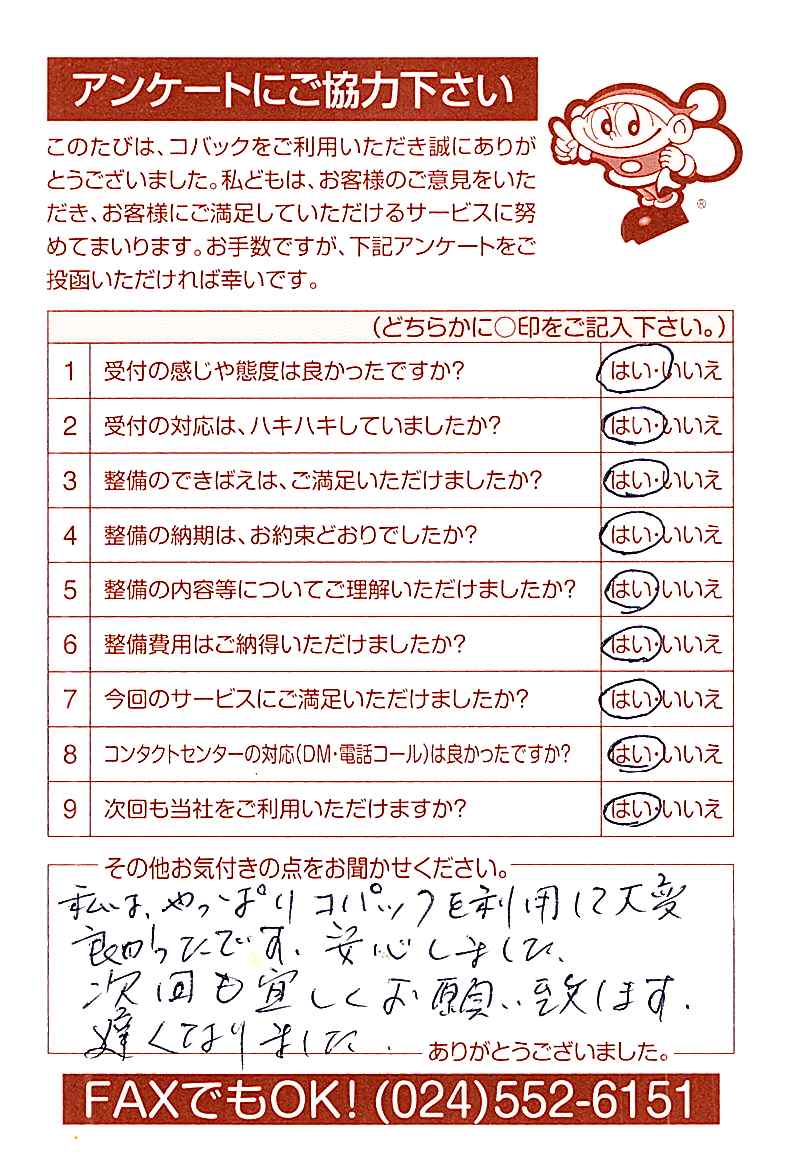 アンケートにご協力下さい
このたびは、コバックをご利用いただき誠にありが
とうございました。私どもは、お客様のご意見をいた
だき、お客様にご満足していただけるサービスに努
めてまいります。お手数ですが、下記アンケートをご
投函いただければ幸いです。
®
(どちらかに○印をご記入下さい。)
1 受付の感じや態度は良かったですか? はい・いいえ
2 受付の対応は、ハキハキしていましたか? はい・いいえ
3 整備のできばえは、ご満足いただけましたか? はい・いいえ
4 整備の納期は、お約束どおりでしたか? はい・いいえ
5 整備の内容等についてご理解いただけましたか? はい・いいえ
6 整備費用はご納得いただけましたか? はい・いいえ
7 今回のサービスにご満足いただけましたか? はい・いいえ
8 コンタクトセンターの対応(DM・電話コール)は良かったですか? はい・いいえ
9 次回も当社をご利用いただけますか? はい・いいえ
その他お気付きの点をお聞かせください。
私は、やっぱりコバックを利用して大変
良かったです。安心しました。
次回も宜しくお願い致します。
遅くなりました。
ありがとうございました。
FAXでもOK! (024)552-6151